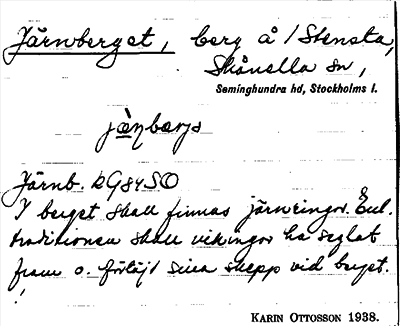 Järnberget, berg å /Stensta,
Skånella sn,
Seminghundra hd, Stockholms l.
jä̀ṇbarjə
Järnb. RG84SO
I berget skall finnas järnringar. Enl.
traditionen skall vikingar ha seglat
fram o. förtöjt sina skepp vid berget.
KARIN OTTOSSON 1938.